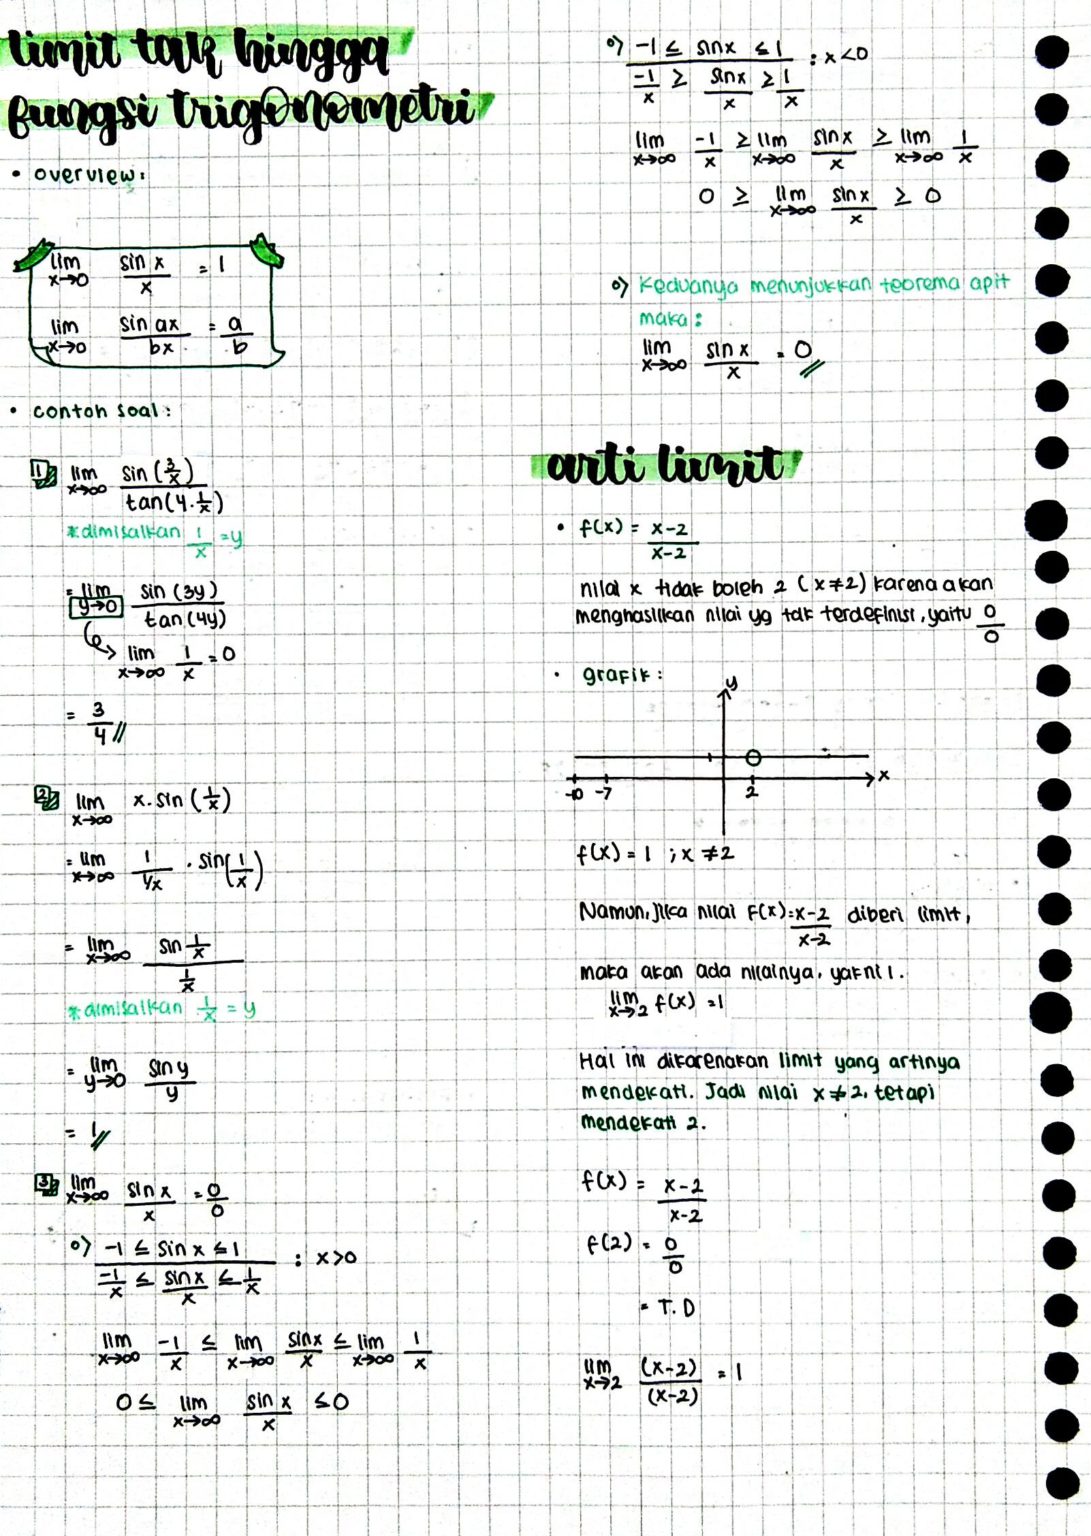 limit tak hingga
fungsi trigonometri
• overview:
lim x→0 sin x / x = 1
lim x→0 sin ax / bx = a/b
• contoh soal:
1 lim x→∞ sin (3/x) / tan (4 · 1/x)
*dimisalkan 1/x = y
= lim y→0 sin (3y) / tan (4y)
lim x→∞ 1/x = 0
= 3/4 //
2 lim x→∞ x . sin (1/x)
= lim x→∞ 1 / 1/x . sin (1/x)
= lim x→∞ sin 1/x / 1/x
*dimisalkan 1/x = y
= lim y→0 sin y / y
= 1 //
3 lim x→∞ sin x / x = 0/0
o) -1 ≤ sin x ≤ 1 : x>0
-1/x ≤ sin x / x ≤ 1/x
lim x→∞ -1/x ≤ lim x→∞ sin x / x ≤ lim x→∞ 1/x
0 ≤ lim x→∞ sin x / x ≤ 0
o) -1 ≤ sin x ≤ 1 : x<0
-1/x ≥ sin x / x ≥ 1/x
lim x→∞ -1/x ≥ lim x→∞ sin x / x ≥ lim x→∞ 1/x
0 ≥ lim x→∞ sin x / x ≥ 0
o) Keduanya menunjukkan teorema apit
maka:
lim x→∞ sin x / x = 0 //
arti limit
• f(x) = x-2 / x-2
nilai x tidak boleh 2 (x≠2) karena akan
menghasilkan nilai yg tak terdefinisi, yaitu 0/0
• grafik:
y
x
-10 -7 2
f(x) = 1 ; x ≠ 2
Namun, jika nilai f(x) = x-2 / x-2 diberi limit,
maka akan ada nilainya, yakni 1.
lim x→2 f(x) = 1
Hal ini dikarenakan limit yang artinya
mendekati. Jadi nilai x ≠ 2, tetapi
mendekati 2.
f(x) = x-2 / x-2
f(2) = 0/0
= T.D
lim x→2 (x-2) / (x-2) = 1